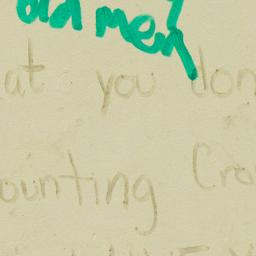 old men
at you don
ounting Cro